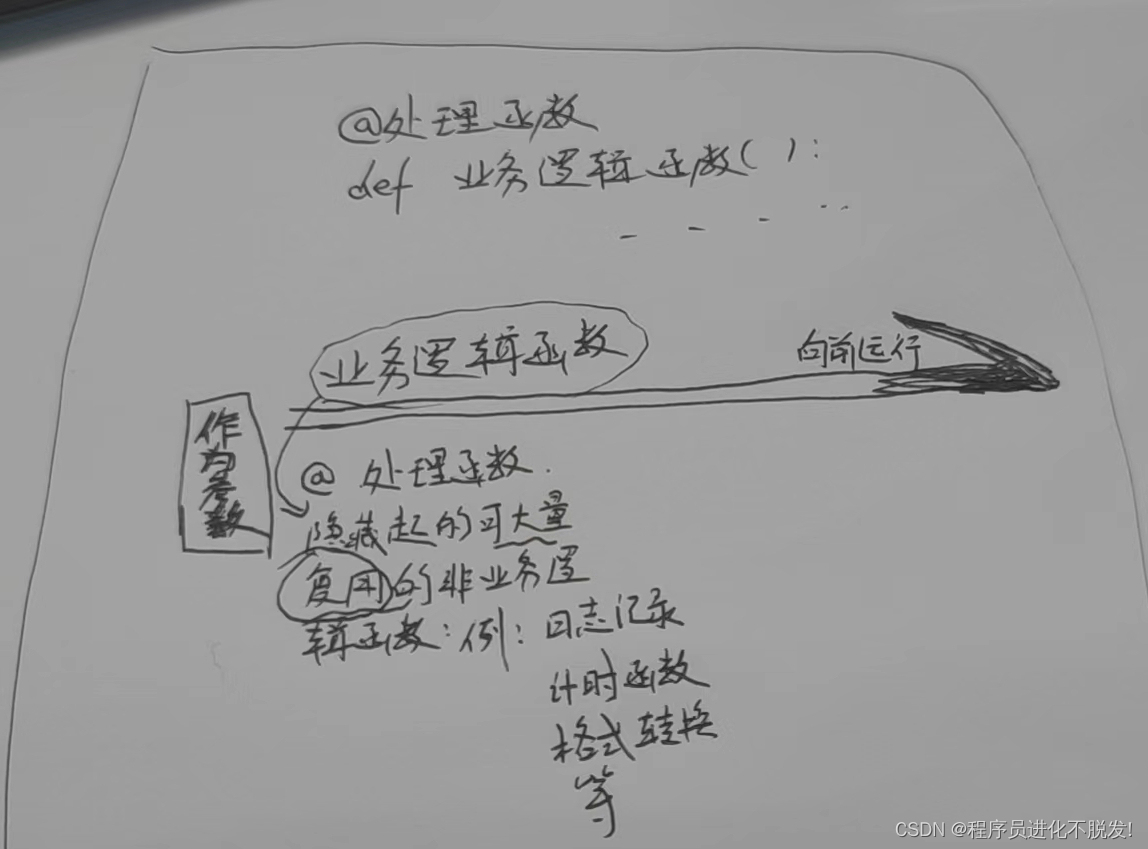 @处理函数
def 业务逻辑函数():
- - - ··
业务逻辑函数
向前运行
作为参数
@ 处理函数.
隐藏起的可大量
复用的非业务逻
辑函数:例:日志记录
计时函数
格式转换
等
CSDN @程序员进化不脱发!